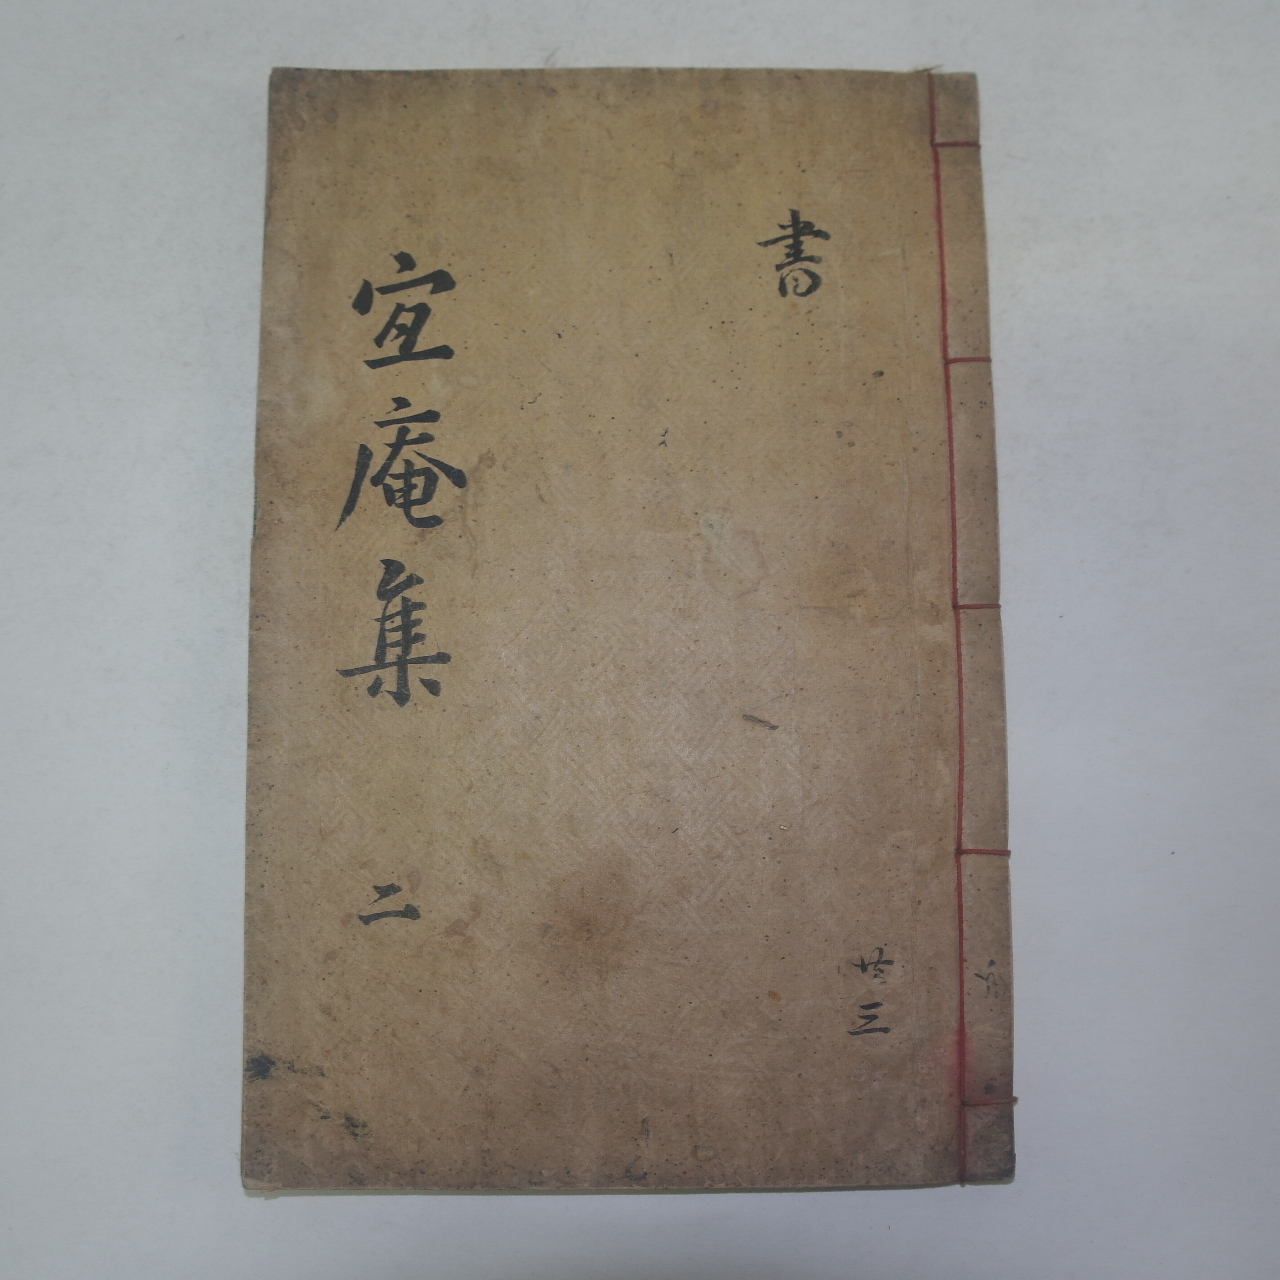 書
共三
宜庵集 二